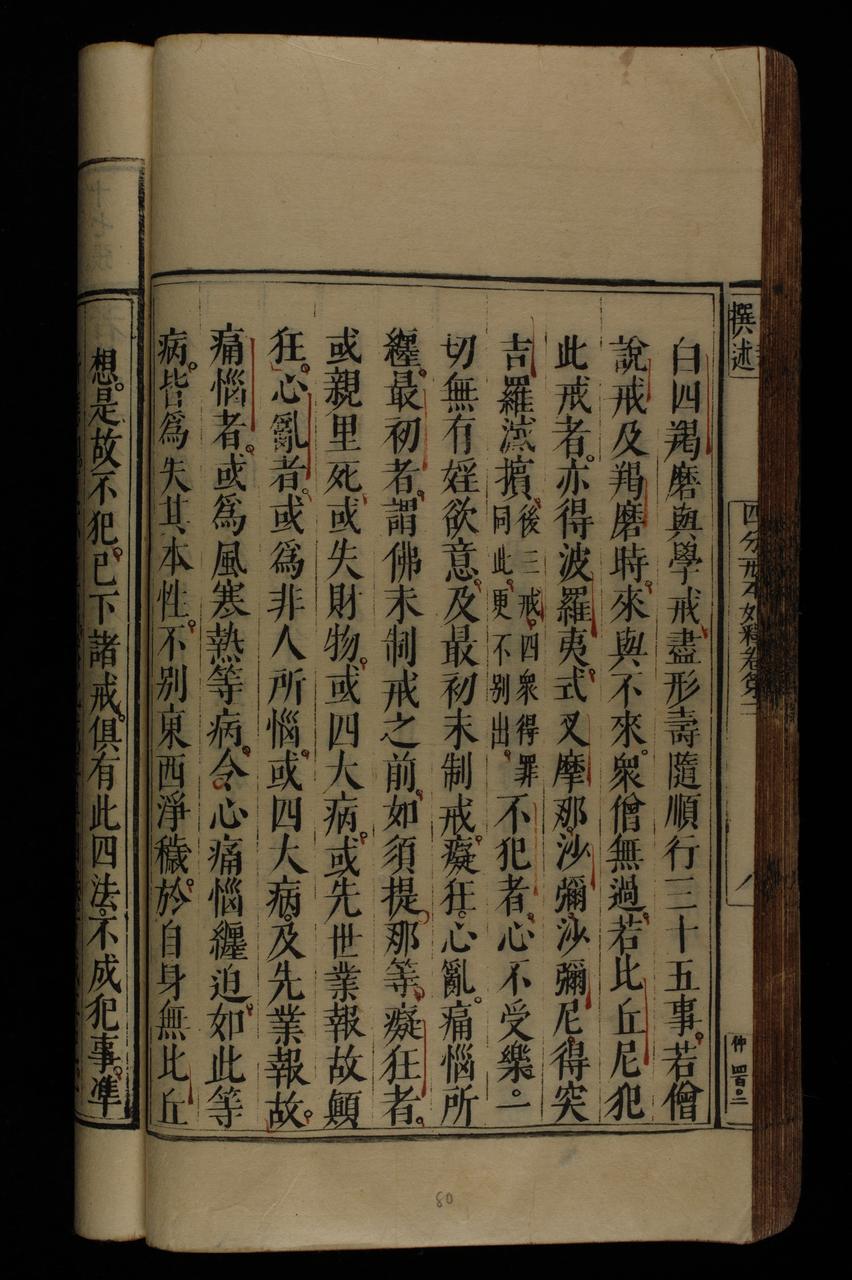 撰述
四分戒本如釋卷第二
八
仲 四百〇二
白四羯磨與學戒盡形壽隨順行三十五事若僧
說戒及羯磨時來與不來衆僧無過若比丘尼犯
此戒者亦得波羅夷式叉摩那沙彌沙彌尼得突
吉羅滅擯後三戒四衆得罪同此更不別出不犯者心不受樂一
切無有婬欲意及最初未制戒癡狂心亂痛惱所
纏最初者謂佛未制戒之前如須提那等癡狂者
或親里死或失財物或四大病或先世業報故顛
狂心亂者或爲非人所惱或四大病及先業報故
痛惱者或爲風寒熱等病令心痛惱纏迫如此等
病皆爲失其本性不別東西淨穢於自身無比丘
想是故不犯已下諸戒俱有此四法不成犯事準
80